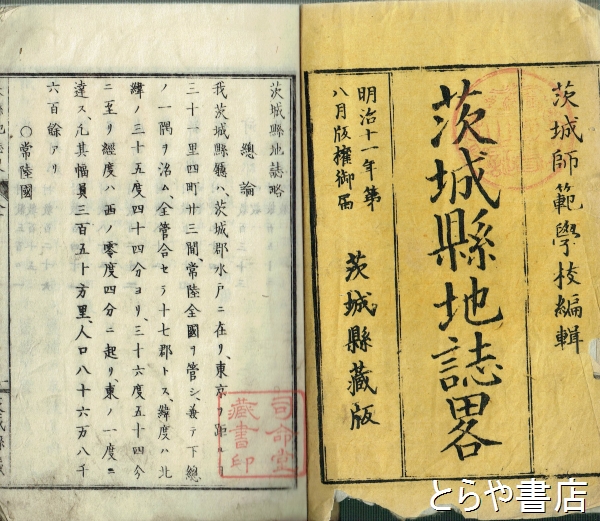 茨城師範學校編輯
茨城縣地誌畧
明治十一年第
八月版権御届
茨城縣藏版
茨城縣地誌略
總論
我茨城縣廳ハ、茨城郡水戸ニ在リ、東京ヲ距ル
三十一里四町廿三間、常陸全國ヲ管シ、兼テ下總
ノ一隅ヲ治ム、全管合セラ十七郡トス、緯度ハ北
緯ノ三十五度四十四分ヨリ、三十六度五十四分
ニ至リ、經度ハ西ノ零度四分ニ起リ、東ノ一度ニ
達ス、凡其幅員三百五十方里、人口八十六万八千
六百餘アリ
〇常陸國
司命堂
藏書印
とらや書店